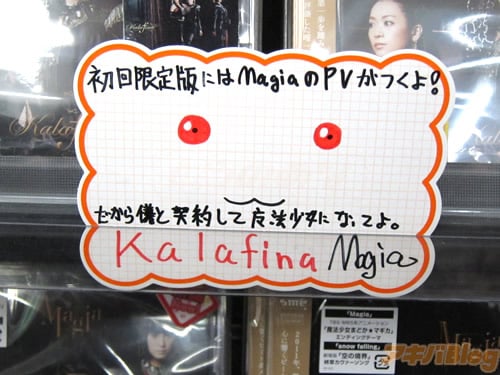 Kalafina
初回限定版にはMagiaのPVがつくよ!
だから僕と契約して魔法少女になってよ。
Kalafina Magia
Magia
「Magia」
「魔法少女まどか★マギカ」
エンディングテーマ
「snow falling」
劇場版「空の境界」
アキバBlog